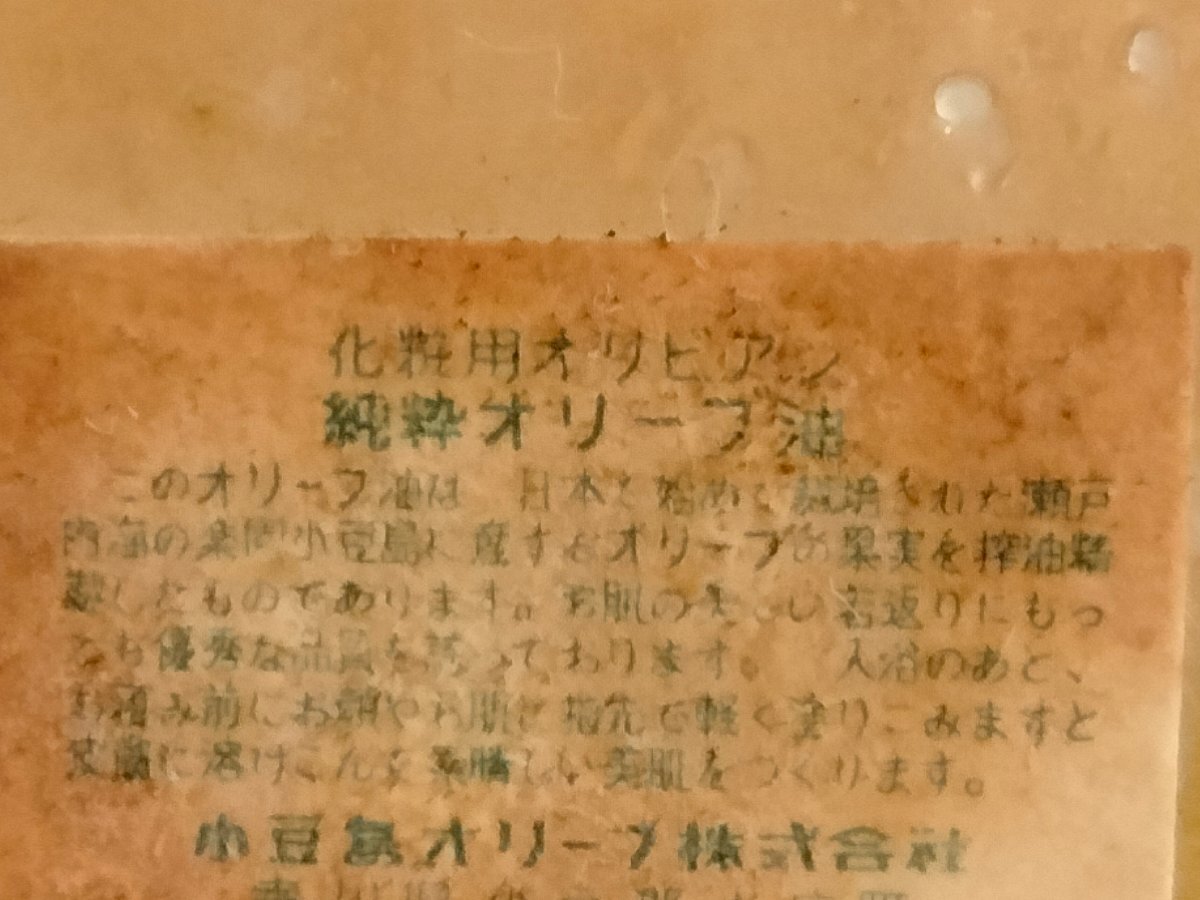 化粧用オリビアン
純粋オリーブ油
このオリーブ油は 日本で始めて栽培された瀬戸
内海の楽園小豆島に産するオリーブの果実を搾油精
製したものであります。お肌の美しい若返りにもっ
とも優秀な品質を誇っております。 入浴のあと、
お休み前にお顔やお肌に指先で軽く塗りこみますと
皮膚に溶けこんで素晴しい美肌をつくります。
小豆島オリーブ株式会社